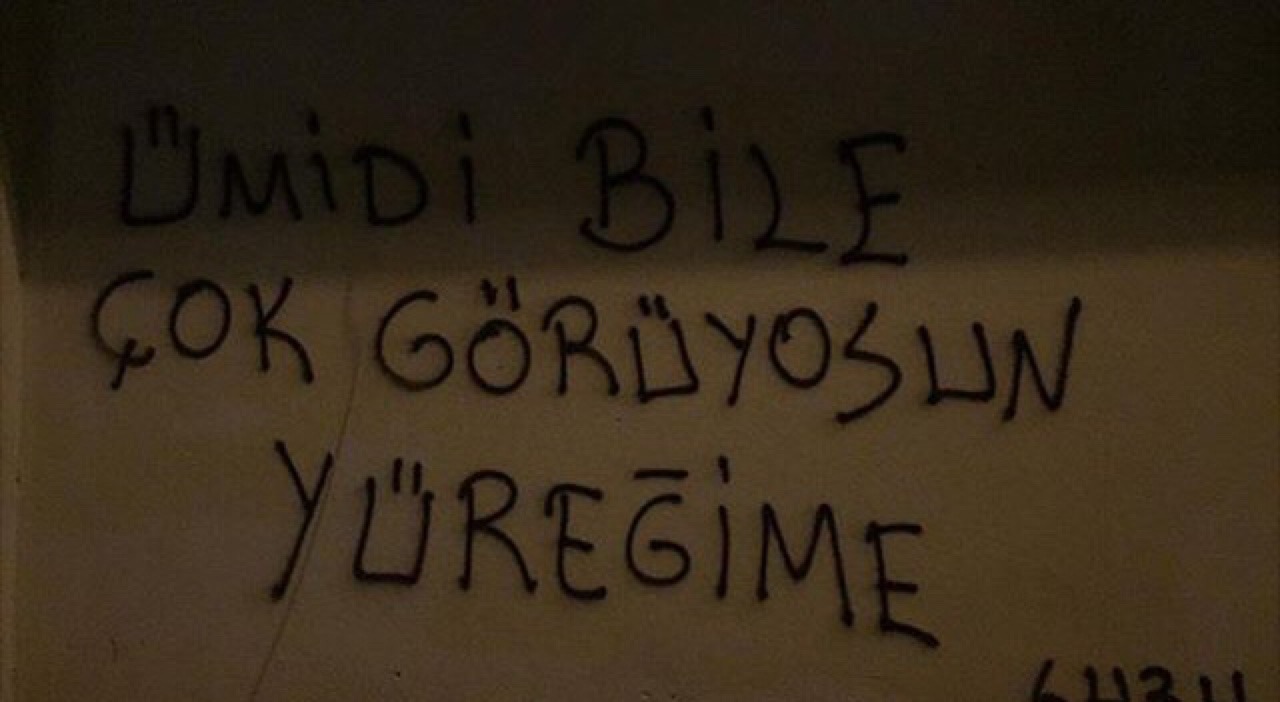 ÜMİDİ BİLE
ÇOK GÖRÜYOSUN
YÜREĞİME